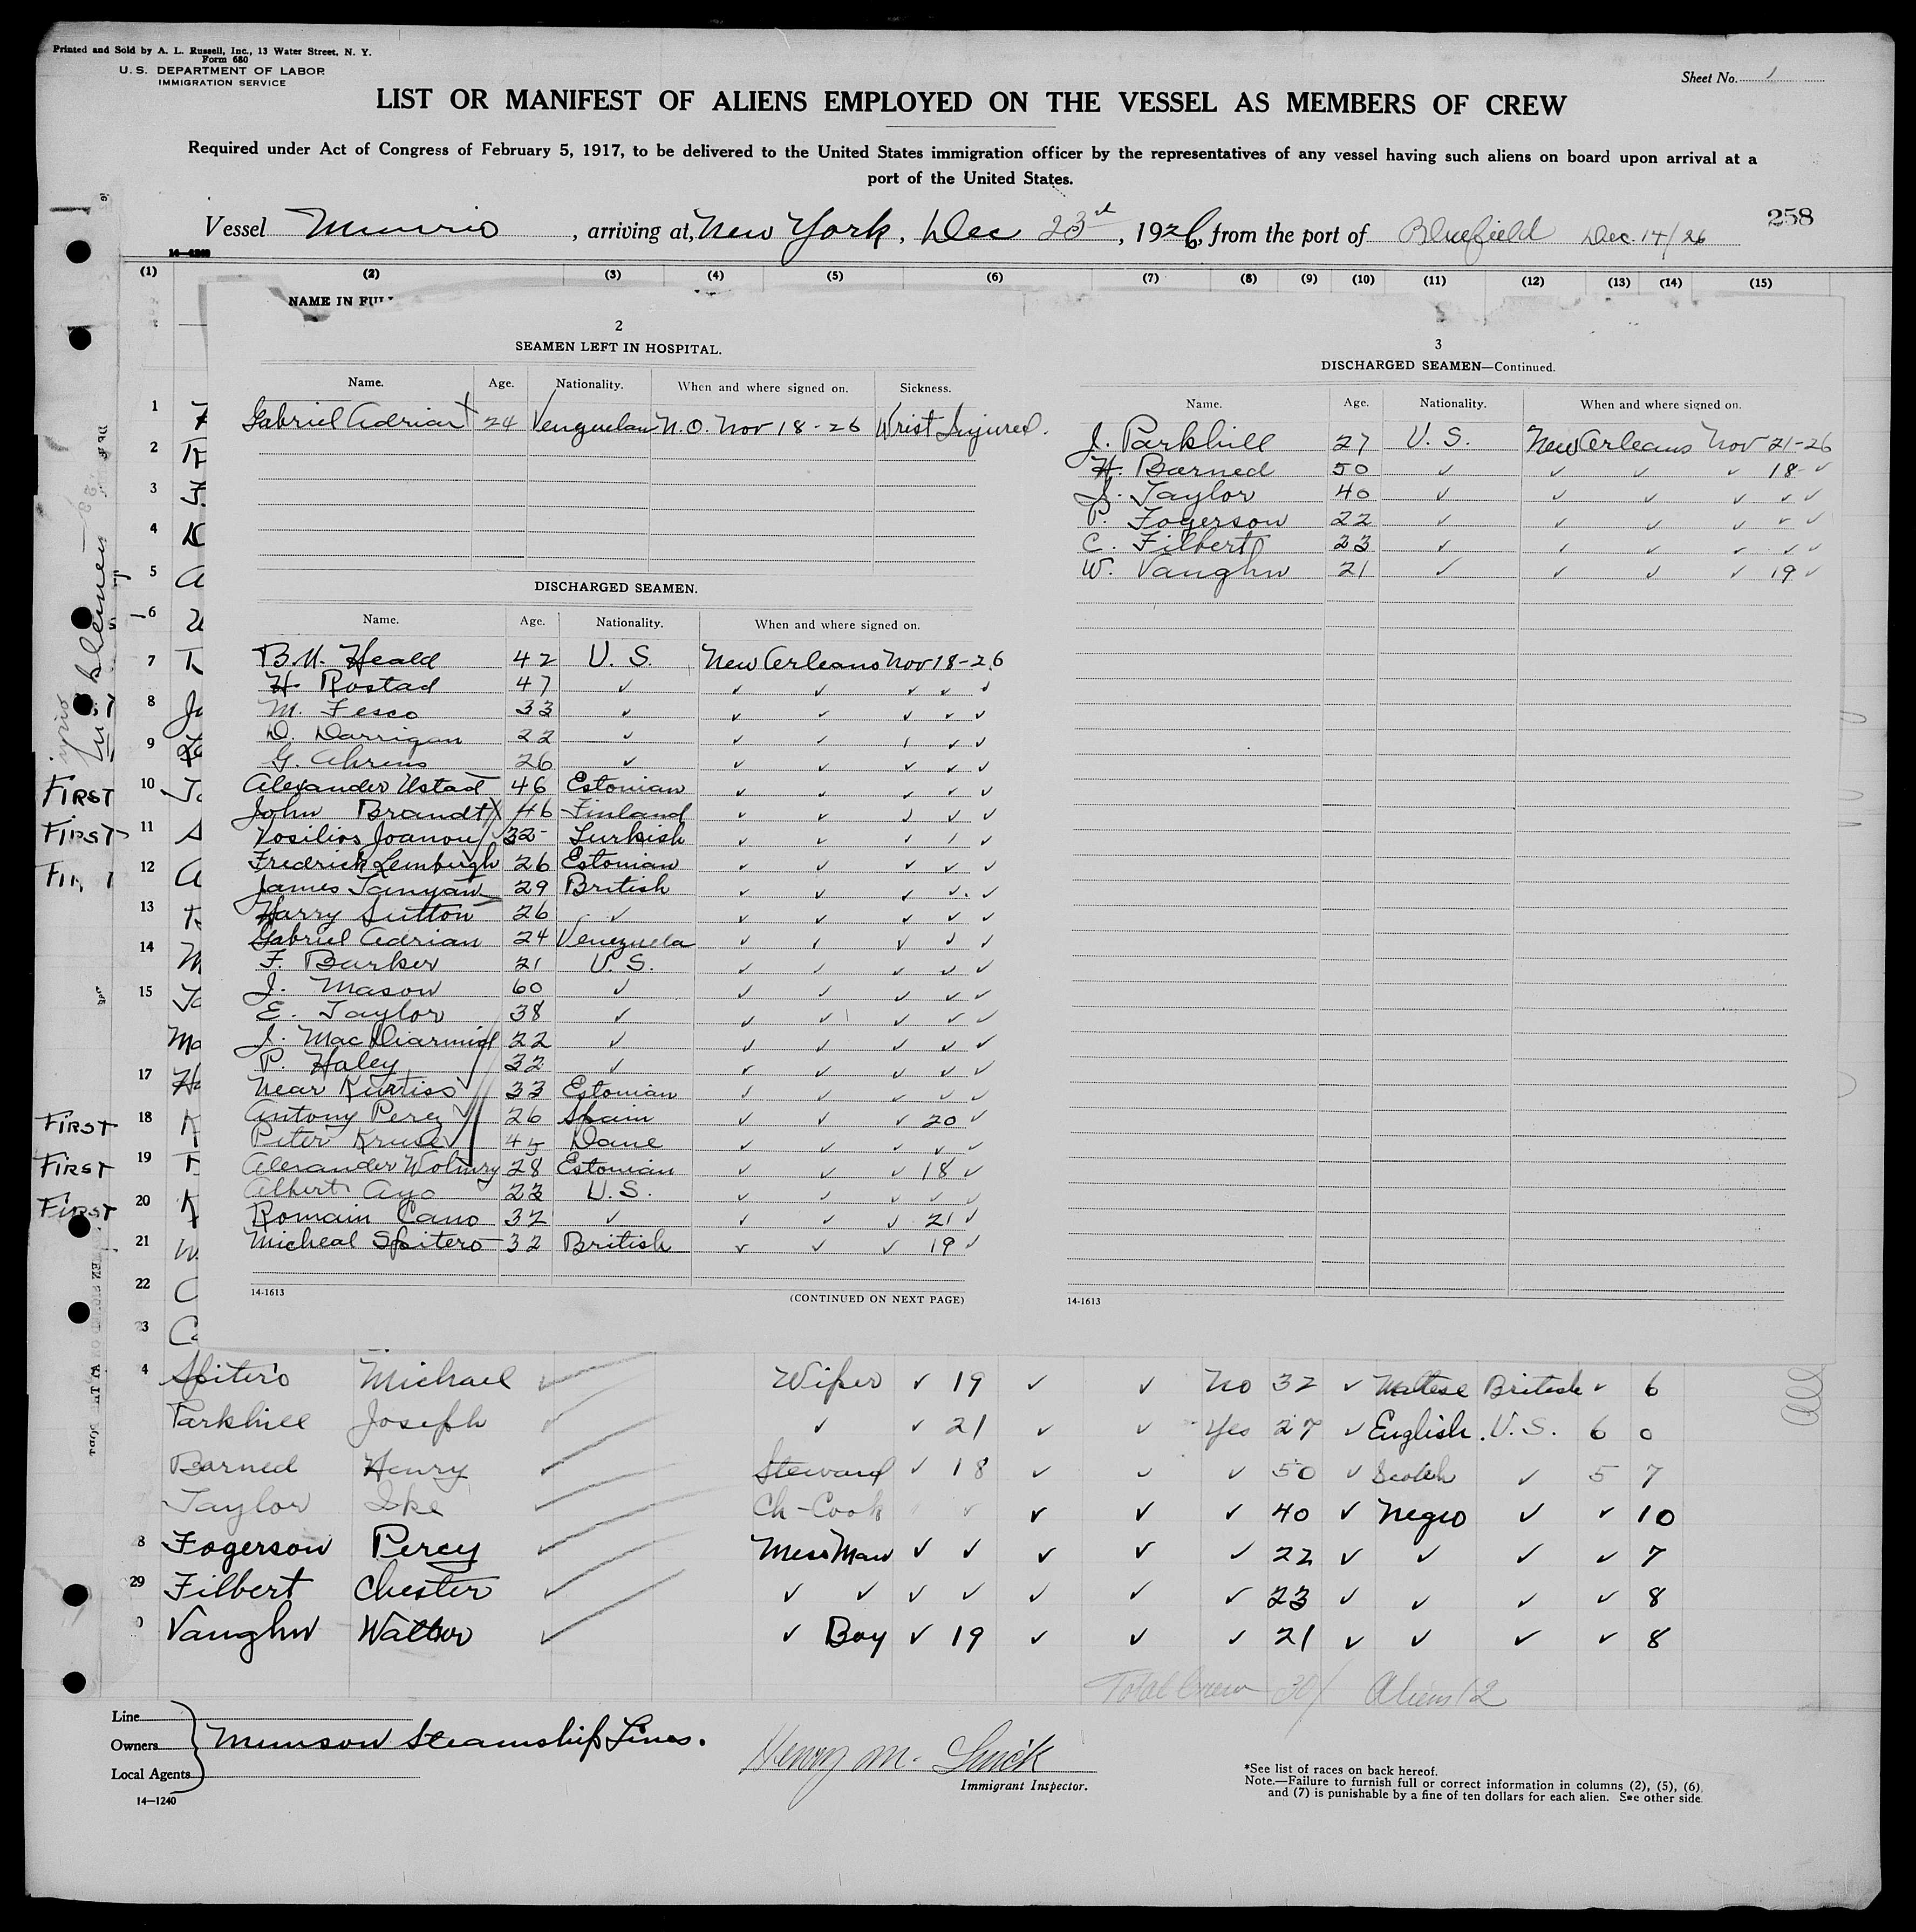 Printed and Sold by A. L. Russell, Inc., 13 Water Street, N. Y.
Form 680
U. S. DEPARTMENT OF LABOR
IMMIGRATION SERVICE
Sheet No. 1
LIST OR MANIFEST OF ALIENS EMPLOYED ON THE VESSEL AS MEMBERS OF CREW
Required under Act of Congress of February 5, 1917, to be delivered to the United States immigration officer by the representatives of any vessel having such aliens on board upon arrival at a
port of the United States.
258
Vessel Munrio, arriving at, New York, Dec 23d, 1926, from the port of Bluefield Dec. 14/26
14-1240
(1) (2) (3) (4) (5) (6) (7) (8) (9) (10) (11) (12) (13) (14) (15)
NAME IN FULL
2
SEAMEN LEFT IN HOSPITAL.
Name. Age. Nationality. When and where signed on. Sickness.
Gabriel Adrian 24 Venezuelan N.O. Nov 18-26 Wrist Injured.
DISCHARGED SEAMEN.
Name. Age. Nationality. When and where signed on.
B.M. Heald 42 U.S. New Orleans Nov 18-26
H. Rostad 47 ✓ ✓ ✓ ✓ ✓ ✓
M. Fesco 33 ✓ ✓ ✓ ✓ ✓ ✓
D. Darrigan 22 ✓ ✓ ✓ ✓ ✓ ✓
G. Ahrens 26 ✓ ✓ ✓ ✓ ✓ ✓
Alexander Ustad 46 Estonian ✓ ✓ ✓ ✓ ✓
John Brandt 46 Finland ✓ ✓ ✓ ✓ ✓
Vosilios Joanou 32 Turkish ✓ ✓ ✓ ✓ ✓
Fredrick Lemburgh 26 Estonian ✓ ✓ ✓ ✓ ✓
James Tanyan 29 British ✓ ✓ ✓ ✓ ✓
Harry Sutton 26 ✓ ✓ ✓ ✓ ✓ ✓
Gabriel Adrian 24 Venezuela ✓ ✓ ✓ ✓ ✓
F. Barker 21 U.S. ✓ ✓ ✓ ✓ ✓
J. Mason 60 ✓ ✓ ✓ ✓ ✓ ✓
E. Taylor 38 ✓ ✓ ✓ ✓ ✓ ✓
J. MacDiarmid 22 ✓ ✓ ✓ ✓ ✓ ✓
P. Haley 32 ✓ ✓ ✓ ✓ ✓ ✓
Near Kurtiss 33 Estonian ✓ ✓ ✓ ✓ ✓
Antony Perez 26 Spain ✓ ✓ ✓ 20 ✓
Peter Kruse 45 Dane ✓ ✓ ✓ ✓ ✓
Alexander Wolmry 28 Estonian ✓ ✓ ✓ 18 ✓
Albert Ayo 23 U.S. ✓ ✓ ✓ ✓ ✓
Romain Cano 32 ✓ ✓ ✓ ✓ 21 ✓
Micheal Spitero 32 British ✓ ✓ ✓ 19 ✓
14-1613
(CONTINUED ON NEXT PAGE)
3
DISCHARGED SEAMEN—Continued.
Name. Age. Nationality. When and where signed on.
J. Parkhill 27 U.S. New Orleans Nov 21-26
H. Barned 50 ✓ ✓ ✓ ✓ 18 ✓
I. Taylor 40 ✓ ✓ ✓ ✓ ✓ ✓
P. Fogerson 22 ✓ ✓ ✓ ✓ ✓ ✓
C. Filbert 23 ✓ ✓ ✓ ✓ ✓ ✓
W. Vaughn 21 ✓ ✓ ✓ ✓ 19 ✓
14-1613
1
2
3
4
5
6
7
8
9
FIRST 10
FIRST 11
12
13
14
15
17
FIRST 18
FIRST 19
FIRST 20
21
22
23
4 Spitero Michael ✓ Wiper ✓ 19 ✓ ✓ No 32 ✓ Maltese British ✓ 6
Parkhill Joseph ✓ ✓ ✓ 21 ✓ ✓ Yes 27 ✓ English U.S. 6 0
Barned Henry ✓ Steward ✓ 18 ✓ ✓ ✓ 50 ✓ Scotch ✓ 5 7
Taylor Ike Ch-Cook ✓ ✓ ✓ ✓ 40 ✓ Negro ✓ ✓ 10
8 Fogerson Percy ✓ MessMan ✓ ✓ ✓ ✓ ✓ 22 ✓ ✓ ✓ ✓ 7
29 Filbert Chester ✓ ✓ ✓ ✓ ✓ ✓ ✓ ✓ 23 ✓ ✓ ✓ ✓ 8
0 Vaughn Walter ✓ ✓ Boy ✓ 19 ✓ ✓ ✓ 21 ✓ ✓ ✓ ✓ 8
Total Crew 30/ Aliens 12
Line
Owners Munson Steamship Lines.
Local Agents
14—1240
Henry M.
Immigrant Inspector.
*See list of races on back hereof.
Note.—Failure to furnish full or correct information in columns (2), (5), (6),
and (7) is punishable by a fine of ten dollars for each alien. See other side.